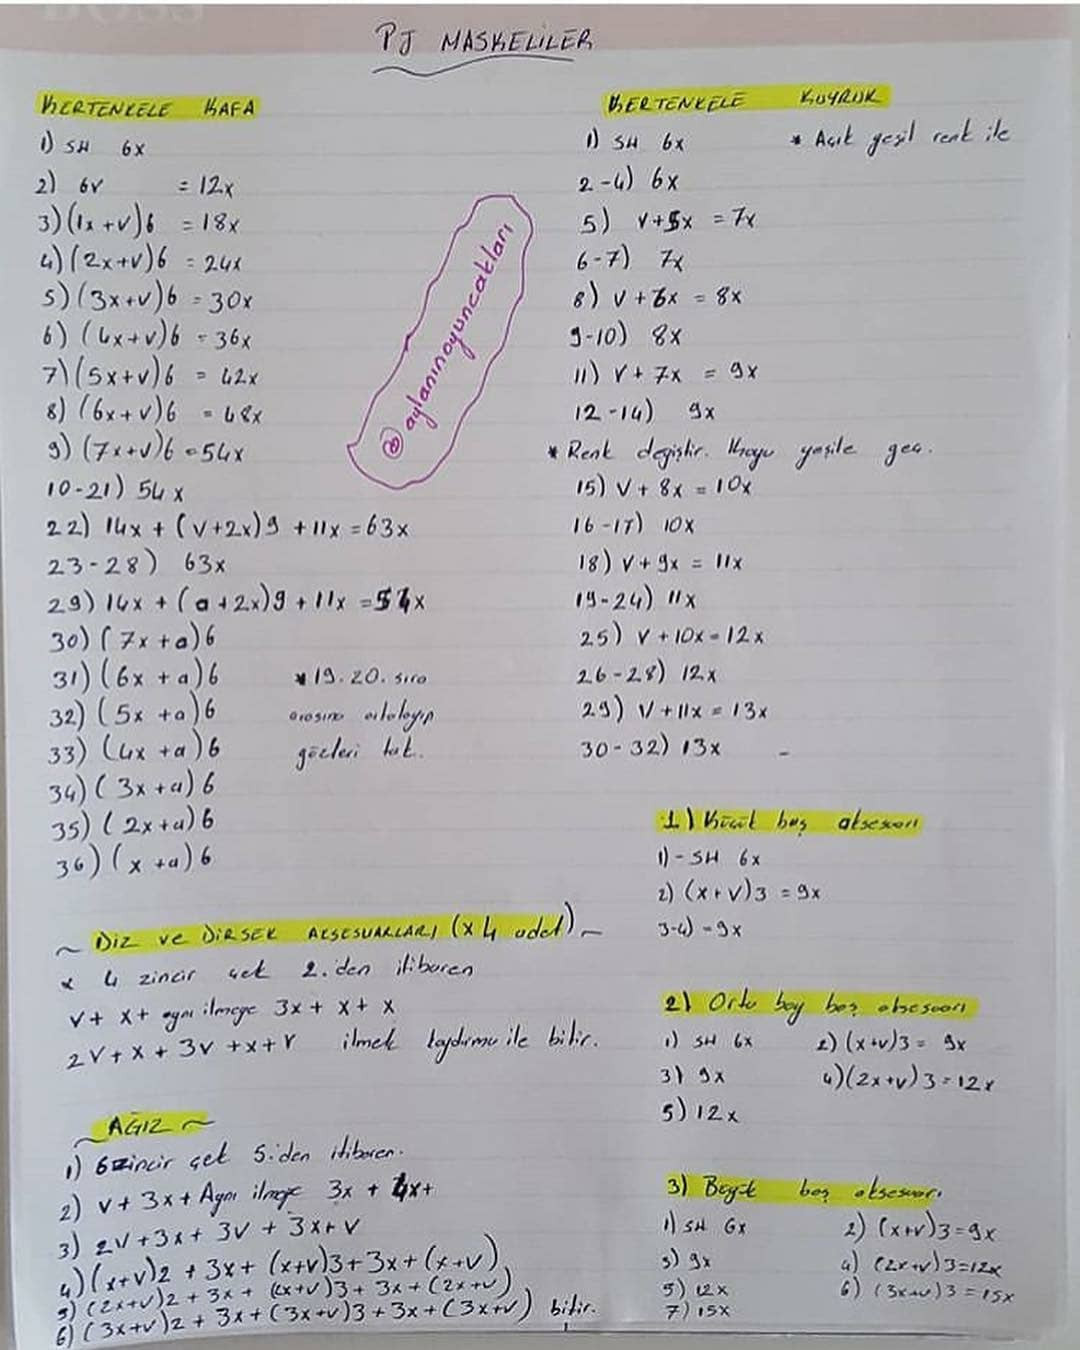 PJ MASKELİLER
KERTENKELE KAFA
1) SH 6x
2) 6V = 12x
3) (1x + V)6 = 18x
4) (2x+V)6 = 24x
5) (3x+V)6 = 30x
6) (4x+V)6 = 36x
7) (5x+V)6 = 42x
8) (6x+V)6 = 48x
9) (7x+V)6 = 54x
10-21) 54x
22) 14x + (V+2x)9 + 11x = 63x
23-28) 63x
29) 14x + (a+2x)9 + 11x = 54x
30) (7x + a)6
31) (6x + a)6
32) (5x + a)6
33) (4x + a)6
34) (3x + a)6
35) (2x + a)6
36) (x + a)6
* 19. 20. sıra
arasına ortalayıp
gözleri tak.
@aylanınoyuncakları
KERTENKELE KUYRUK
1) SH 6x * Açık yeşil renk ile
2-4) 6x
5) V+5x = 7x
6-7) 7x
8) V+6x = 8x
9-10) 8x
11) V+ 7x = 9x
12-14) 9x
* Renk değiştir. Koyu yeşile geç.
15) V + 8x = 10x
16-17) 10x
18) V + 9x = 11x
19-24) 11x
25) V + 10x = 12x
26-28) 12x
29) V + 11x = 13x
30-32) 13x
~ DİZ ve DİRSEK AKSESUARLARI (x4 adet) ~
* 4 zincir çek 2.den itibaren
V + x + aynı ilmeğe 3x + x + x
2V + x + 3V + x + V ilmek kaydırma ile bitir.
~ AĞIZ ~
1) 6 zincir çek 5.den itibaren.
2) V + 3x + Aynı ilmeğe 3x + 4x+
3) 2V + 3x + 3V + 3x + V
4) (x+V)2 + 3x + (x+V)3 + 3x + (x+V)
5) (2x+V)2 + 3x + (2x+V)3 + 3x + (2x+V)
6) (3x+V)2 + 3x + (3x+V)3 + 3x + (3x+V) bitir.
1) Küçük baş aksesuarı
1) - SH 6x
2) (x+V)3 = 9x
3-4) - 9x
2) Orta boy baş aksesuarı
1) SH 6x 2) (x+V)3 = 9x
3) 9x 4) (2x+V)3 = 12x
5) 12x
3) Büyük baş aksesuarı
1) SH 6x 2) (x+V)3 = 9x
3) 9x 4) (2x+V)3 = 12x
5) 12x 6) (3x+V)3 = 15x
7) 15x